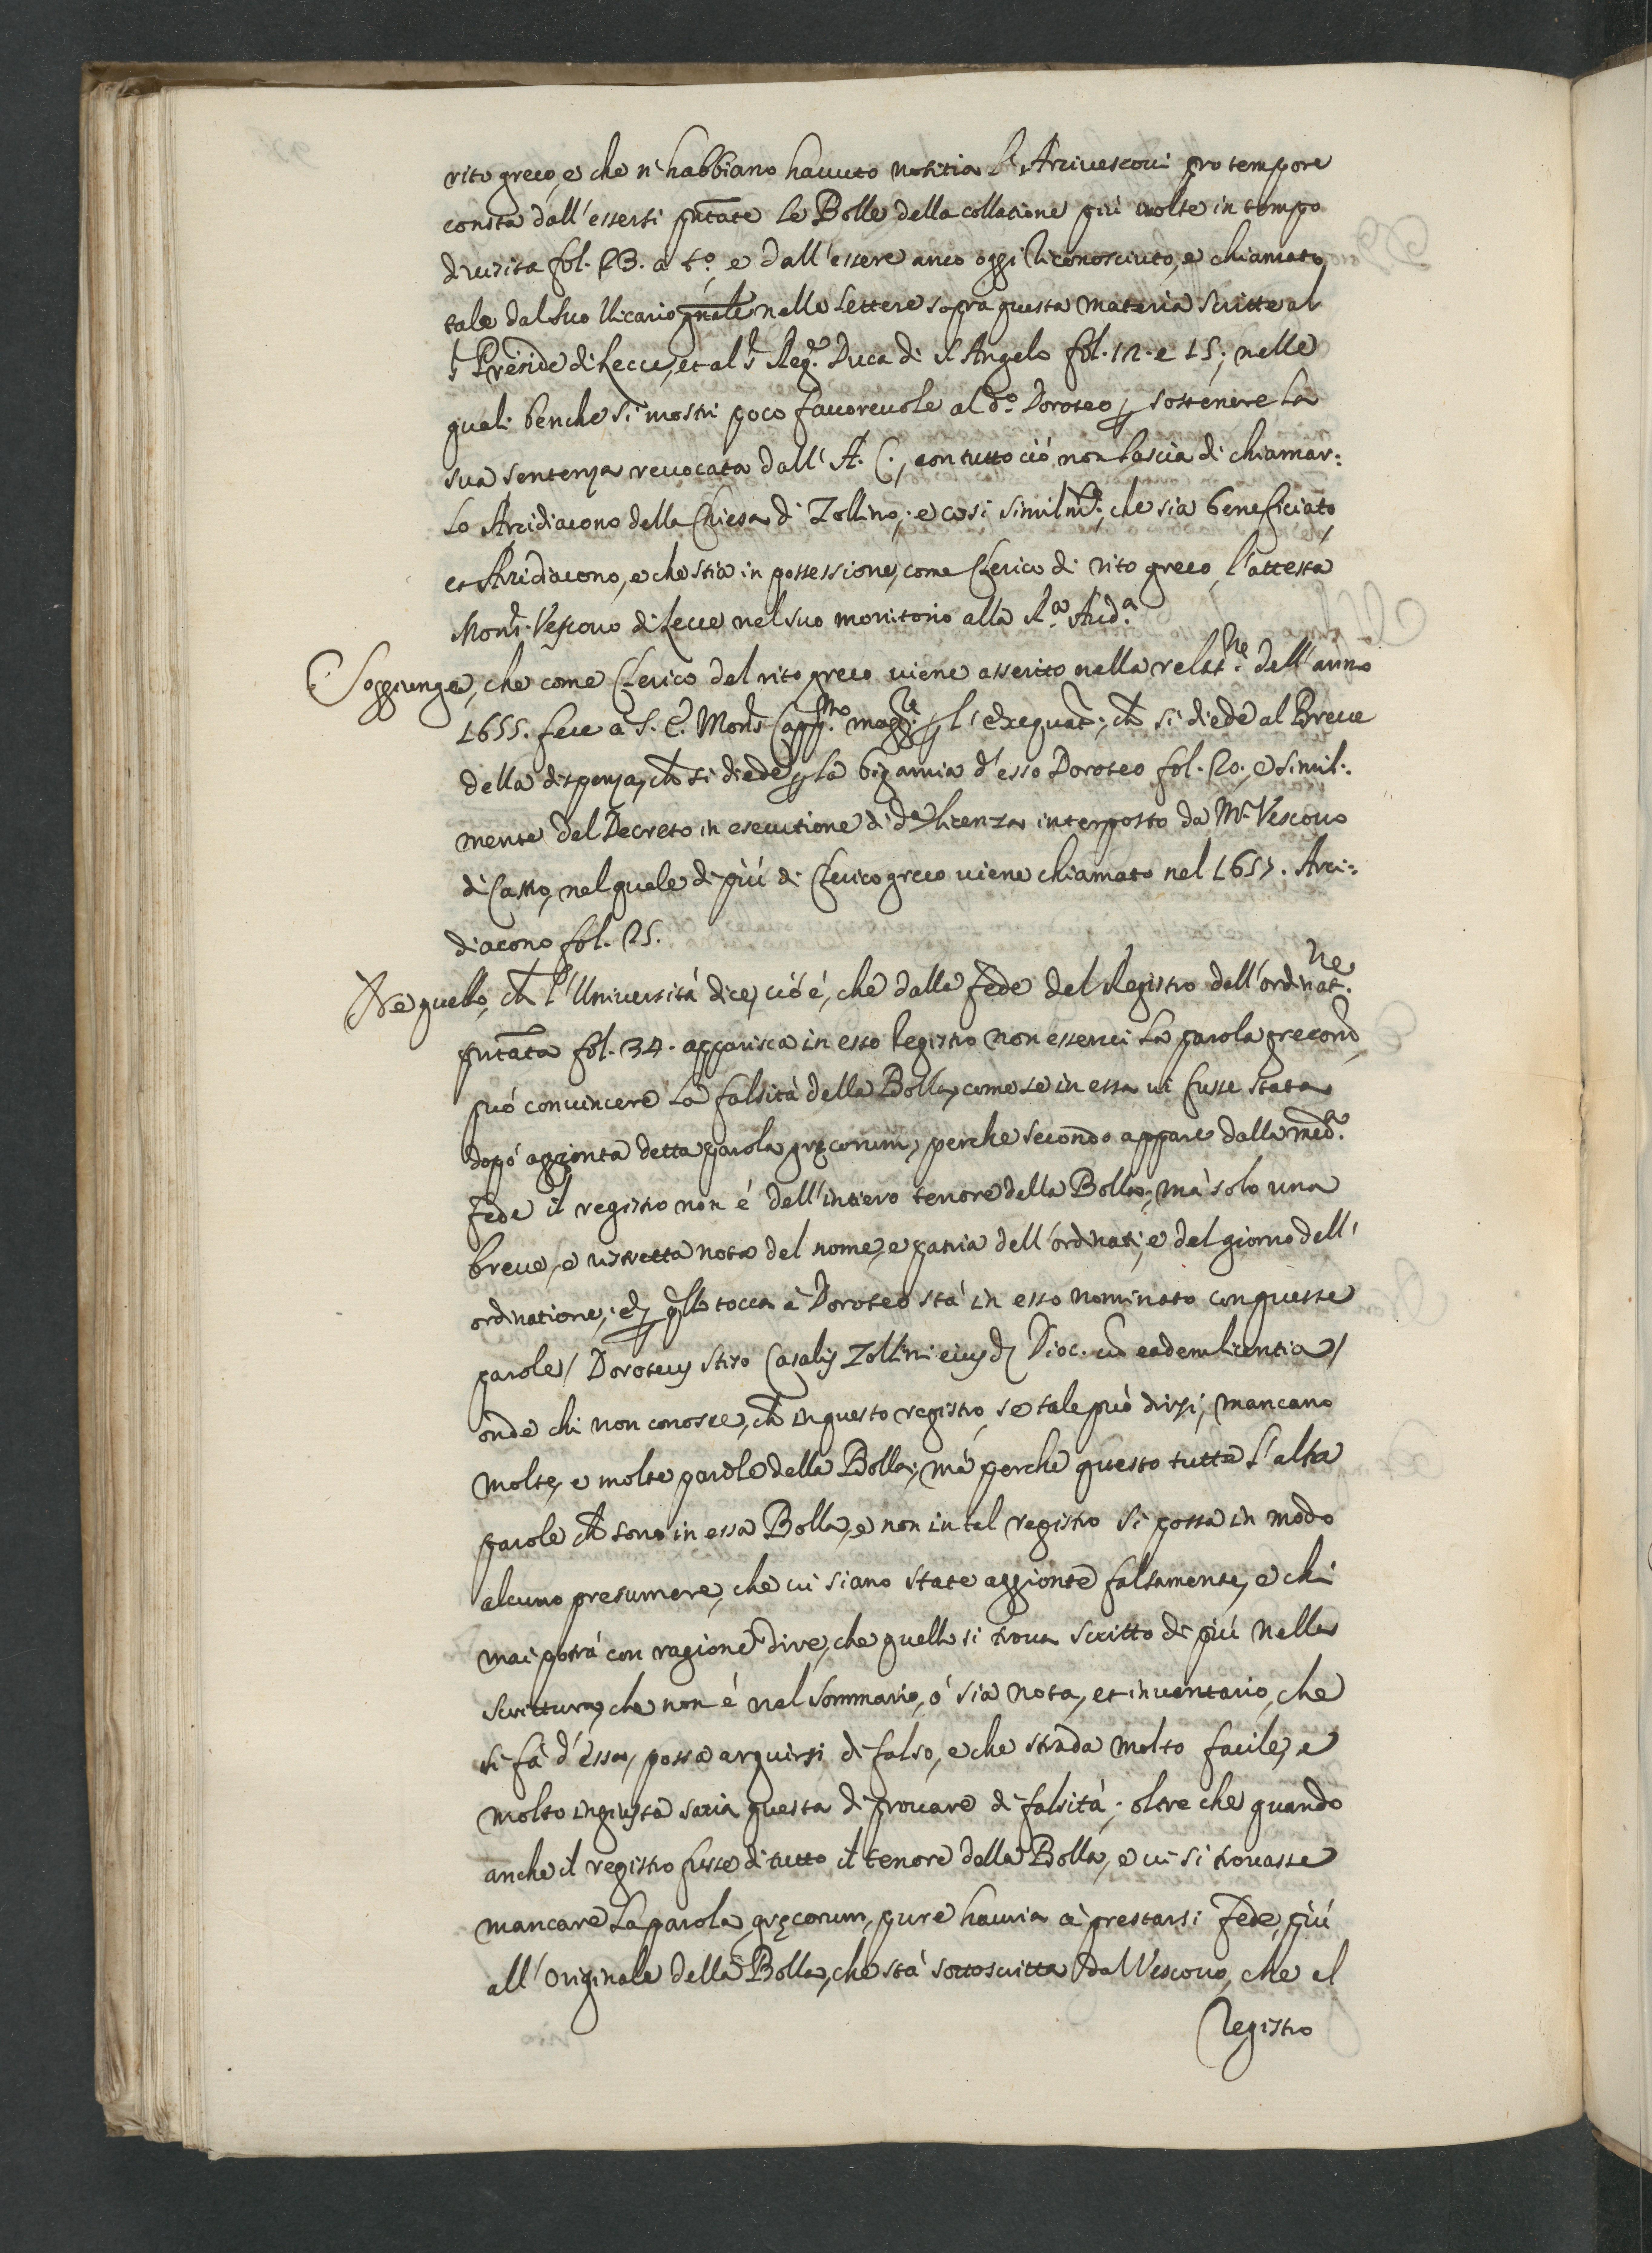 rito greco, e che n'habbiano hauuto notitia l'Arciuescoui pro tempore
consta dall'essersi pntate le Bolle della collatione più uolte in tempo
di uisita fol. 23. a t.º e dall'essere anco oggi riconosciuto, e chiamato
tale dal suo Vicario gnale nelle lettere sopra questa materia scritte al
s.r Preside di Lecce, et al s.r Reg.te Duca di S. Angelo fol. 12. e 15; nelle
quali benche si mostri poco fauoreuole al d.º Doroteo p sostenere la
sua sentenza reuocata dall'A. C., con tutto ciò non lascia di chiamar:
lo Arcidiacono della Chiesa di Zollino; e cosi similm.te, che sia beneficiato
et Arcidiacono, e che stia in possessione, come Clerico di rito greco, l'attesta
Mons.r Vescouo di Lecce nel suo monitorio alla R.a Aud.a
Soggiunge, che come Clerico del rito greco uiene asserito nella relat.ne dell'anno
1655. fece a S. E. Mons.r Capp.no magg.re p l'exequat.r, ch si diede al Breue
della dispensa, ch si diede p la bigamia d'esso Doroteo fol. 20., e simil:
mente del Decreto in esecutione di d.a licenza interposto da M.r Vescouo
di Castro, nel quale di più di Clerico greco uiene chiamato nel 1657. Arci:
diacono fol. 25.
Ne quello, ch l'Università dice, ciò è, che dalla fede del Registro dell'ordinat.ne
pntata fol. 34. apparisca in esso registro non esserui la parola grecorum
può conuincere la falsità della Bolla, come se in essa ui fusse stata
dopò aggionta detta parola gręcorum, perche secondo appare dalla med.a
fede il registro non è dell'intiero tenore della Bolla, mà solo una
breue, e ristretta nota del nome, e patria dell'ordinati, e del giorno dell'
ordinatione; e p qllo tocca à Doroteo stà in esso nominato con queste
parole / Doroteus stiso Casalis Zollini eiusd. Dioc. cū eadem licentia /
onde chi non conosce, ch in questo registro, se tale può dirsi, mancano
molte, e molte parole della Bolla; mà perche questo tutte l'altre
parole ch sono in essa Bolla, e non in tal registro si possa in modo
alcuno presumere, che ui siano state aggionte falsamente, e chi
mai potrà con ragione dire, che quello si troua scritto di più nella
scrittura, che non è nel sommario, ò sia nota, et inuentario, che
si fà d'essa, possa arguirsi di falso, e che strada molto facile, e
molto ingiusta saria questa di prouare di falsità; oltre che quando
anche il registro fusse di tutto il tenore della Bolla, e ui si trouasse
mancare la parola gręcorum, pure hauria à prestarsi fede più
all'originale della Bolla, che stà sottoscritta dal Vescouo, che al
Registro